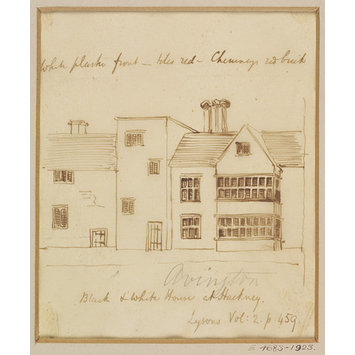 White plaster front – tiles red – Chimneys red brick
Avington
Black & White House At Hackney.
Lysons Vol: 2. p. 459
E 4683-1923.